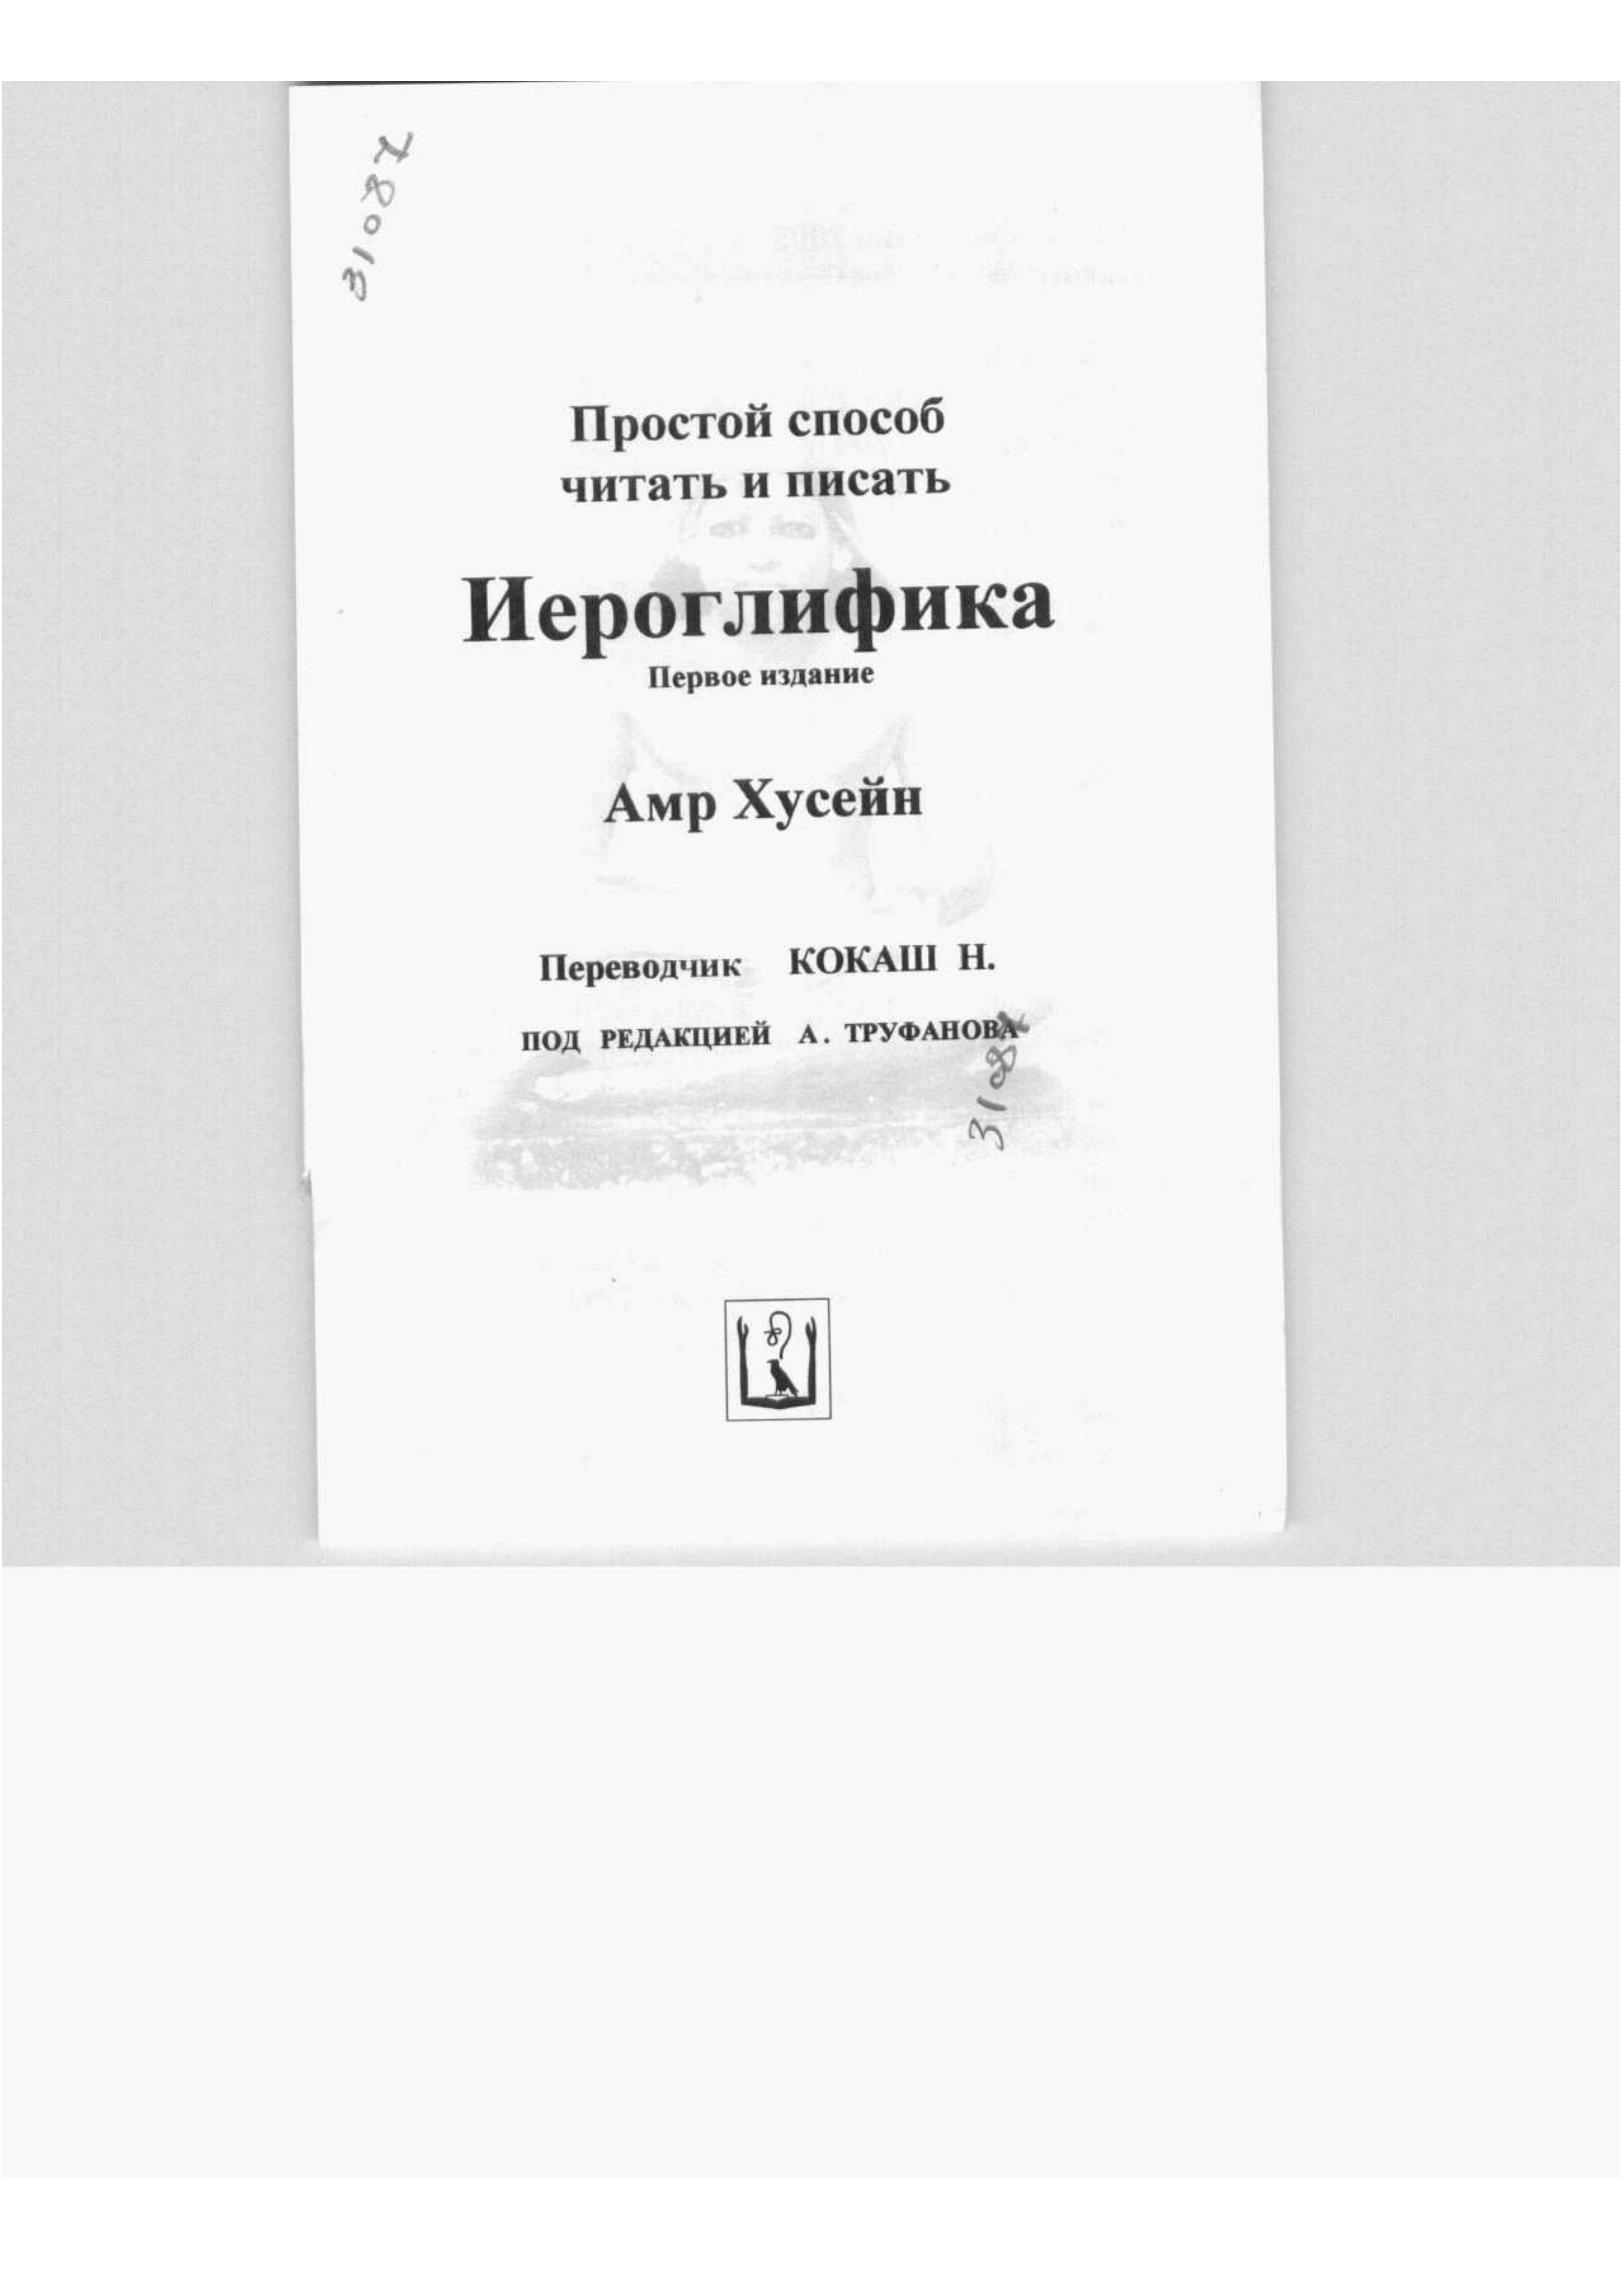 31087
Простой способ
читать и писать
Иероглифика
Первое издание
Амр Хусейн
Переводчик КОКАШ Н.
ПОД РЕДАКЦИЕЙ А. ТРУФАНОВА
31087